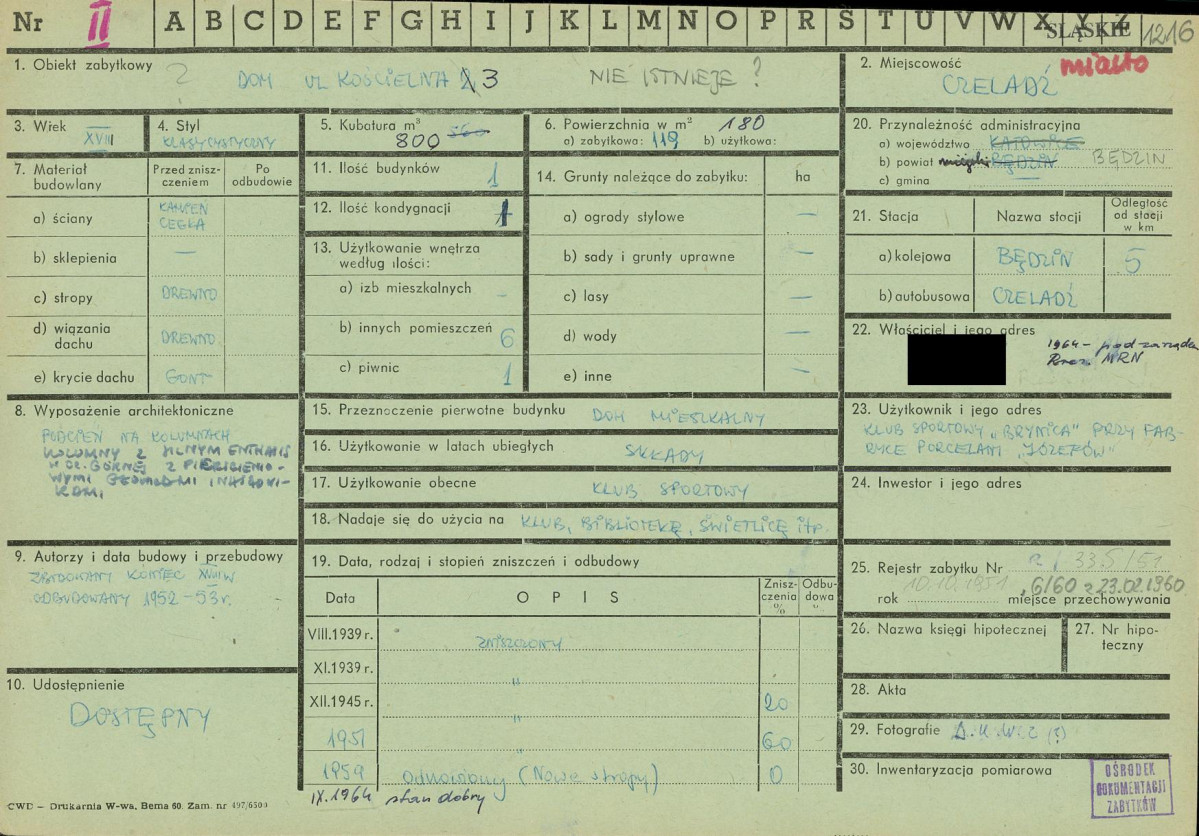 Nr II A B C D E F G H I J K L M N O P R S T U V W X Y Z
ŚLĄSKIE 1216
1. Obiekt zabytkowy 2 DOM UL KOŚCIELNA 3 NIE ISTNIEJE?
2. Miejscowość miasto
CZELADŹ
3. Wiek
XVIII
4. Styl
KLASYCYSTYCZNY
5. Kubatura m³
800 560
6. Powierzchnia w m² 180
a) zabytkowa: 119 b) użytkowa:
20. Przynależność administracyjna
a) województwo KATOWICE
b) powiat miejski BĘDZIN BĘDZIN
c) gmina
7. Materiał budowlany
Przed zniszczeniem
Po odbudowie
a) ściany KAMIEŃ
CEGŁA
b) sklepienia —
c) stropy DREWNO
d) wiązania dachu DREWNO
e) krycie dachu GONT
11. Ilość budynków 1
12. Ilość kondygnacji 1
13. Użytkowanie wnętrza
według ilości:
a) izb mieszkalnych -
b) innych pomieszczeń 6
c) piwnic 1
14. Grunty należące do zabytku: ha
a) ogrody stylowe —
b) sady i grunty uprawne —
c) lasy —
d) wody —
e) inne —
21. Stacja
Nazwa stacji
Odległość
od stacji
w km
a) kolejowa BĘDZIN 5
b) autobusowa CZELADŹ
22. Właściciel i jego adres
1964 – pod zarządem
Prez. MRN
8. Wyposażenie architektoniczne
PODCIEŃ NA KOLUMNACH
KOLUMNY Z SILNYM ENTHASIS
W CZ. GÓRNEJ Z PIERŚCIENIO-
WYMI
15. Przeznaczenie pierwotne budynku DOM MIESZKALNY
16. Użytkowanie w latach ubiegłych SKŁADY
17. Użytkowanie obecne KLUB SPORTOWY
18. Nadaje się do użycia na KLUB, BIBLIOTEKĘ, ŚWIETLICĘ itp.
23. Użytkownik i jego adres
KLUB SPORTOWY „BRYNICA" PRZY FAB-
RYCE PORCELANY „JÓZEFÓW"
24. Inwestor i jego adres
9. Autorzy i data budowy i przebudowy
ZBUDOWANY KONIEC XVIII W
ODBUDOWANY 1952-53 r.
10. Udostępnienie
DOSTĘPNY
19. Data, rodzaj i stopień zniszczeń i odbudowy
Data
OPIS
Zniszczenia %
Odbudowa %
VIII.1939 r. ZNISZCZONY
XI.1939 r. "
XII.1945 r. " 20
1951 " 60
1959 odnowiony (Nowe stropy) 0
IX.1964 stan dobry
25. Rejestr zabytku Nr R/335/51
rok 10.10.1951, 6/60 z 23.02.1960
miejsce przechowywania
26. Nazwa księgi hipotecznej
27. Nr hipoteczny
28. Akta
29. Fotografie
30. Inwentaryzacja pomiarowa
OŚRODEK
DOKUMENTACJI
ZABYTKÓW
CWD – Drukarnia W-wa, Bema 60. Zam. nr 497/6500